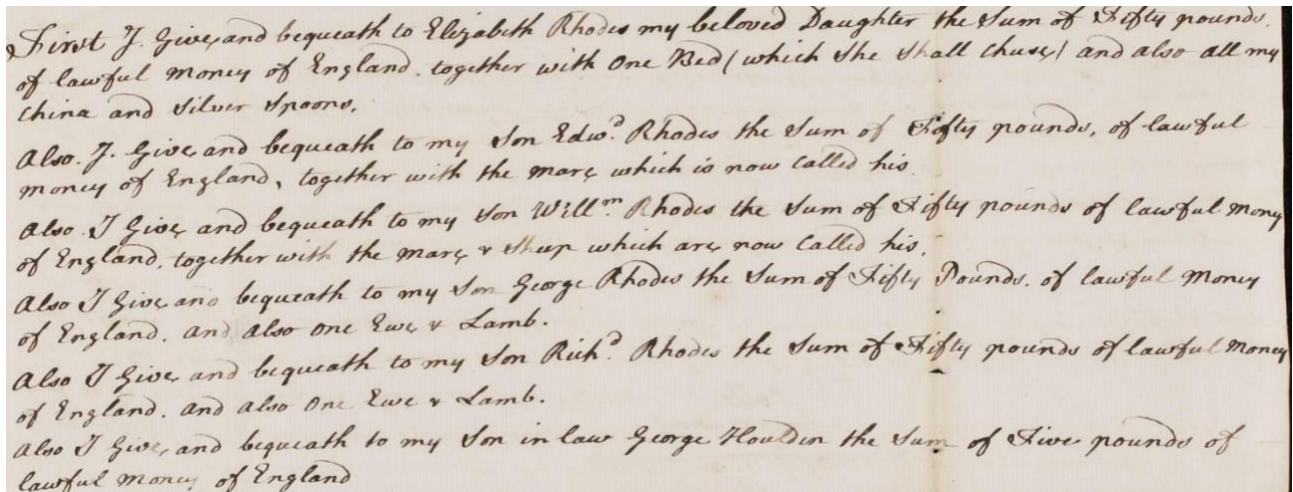 First I. Give, and bequeath to Elizabeth Rhodes my beloved Daughter the Sum of Fifty pounds.
of lawful money of England. together with One Bed (which She Shall Chuse) and also all my
China and Silver Spoons.
Also. I. Give, and bequeath to my Son Edwd. Rhodes the Sum of Fifty pounds, of lawful
money of England, together with the mare which is now Called his.
Also. I Give, and bequeath to my Son Willm. Rhodes the Sum of Fifty pounds of lawful money
of England, together with the mare & Sheep which are now Called his.
Also I Give, and bequeath to my Son George Rhodes the Sum of Fifty Pounds. of lawful Money
of England. and also One Ewe & Lamb.
Also I Give, and bequeath to my Son Richd. Rhodes the Sum of Fifty pounds of lawful money
of England. and also One Ewe & Lamb.
Also I Give, and bequeath to my Son in law George Houldin the Sum of Five pounds of
lawful money of England